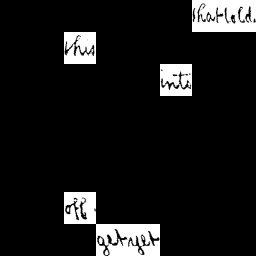 that old.
this
into
off.
get yet